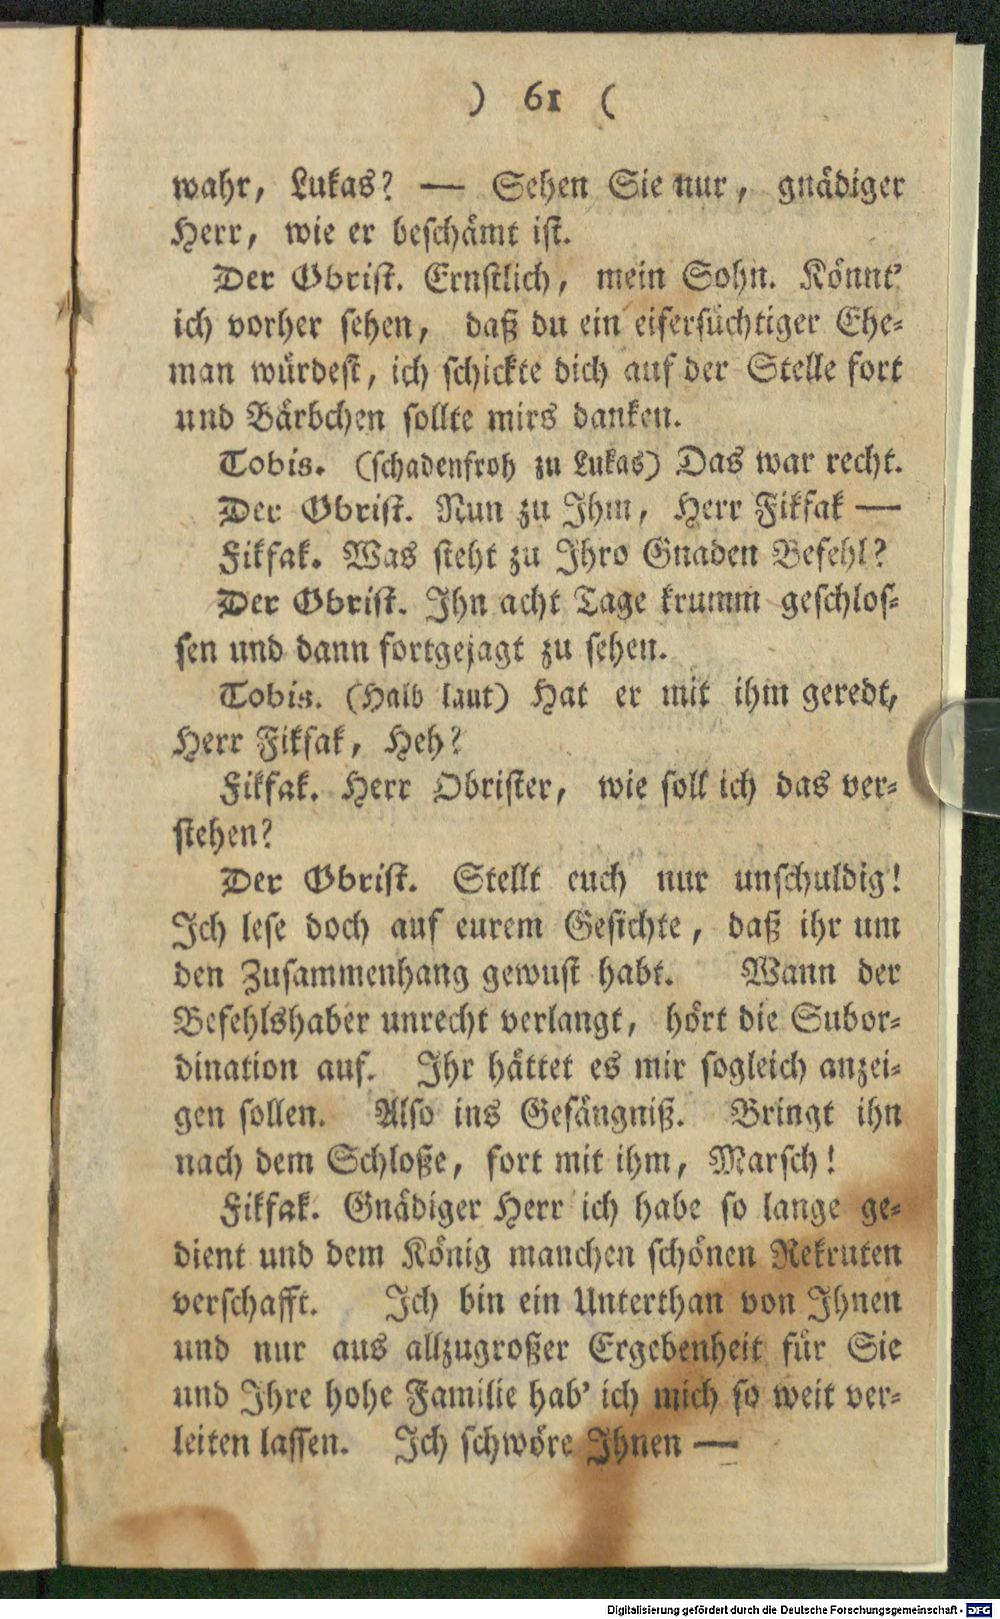 ) 61 (
wahr, Lukas? — Sehen Sie nur, gnädiger
Herr, wie er beschämt ist.
Der Obrist. Ernstlich, mein Sohn. Könnt'
ich vorher sehen, daß du ein eifersüchtiger Ehe-
man würdest, ich schickte dich auf der Stelle fort
und Bärbchen sollte mirs danken.
Tobis. (schadenfroh zu Lukas) Das war recht.
Der Obrist. Nun zu Ihm, Herr Fikfak —
Fikfak. Was steht zu Ihro Gnaden Befehl?
Der Obrist. Ihn acht Tage krumm geschlos-
sen und dann fortgejagt zu sehen.
Tobis. (Halb laut) Hat er mit ihm geredt,
Herr Fikfak, Heh?
Fikfak. Herr Obrister, wie soll ich das ver-
stehen?
Der Obrist. Stellt euch nur unschuldig!
Ich lese doch auf eurem Gesichte, daß ihr um
den Zusammenhang gewust habt. Wann der
Befehlshaber unrecht verlangt, hört die Subor-
dination auf. Ihr hättet es mir sogleich anzei-
gen sollen. Also ins Gefängniß. Bringt ihn
nach dem Schloße, fort mit ihm, Marsch!
Fikfak. Gnädiger Herr ich habe so lange ge-
dient und dem König manchen schönen Rekruten
verschafft. Ich bin ein Unterthan von Ihnen
und nur aus allzugroßer Ergebenheit für Sie
und Ihre hohe Familie hab' ich mich so weit ver-
leiten lassen. Ich schwöre Ihnen —
Digitalisierung gefördert durch die Deutsche Forschungsgemeinschaft - DFG